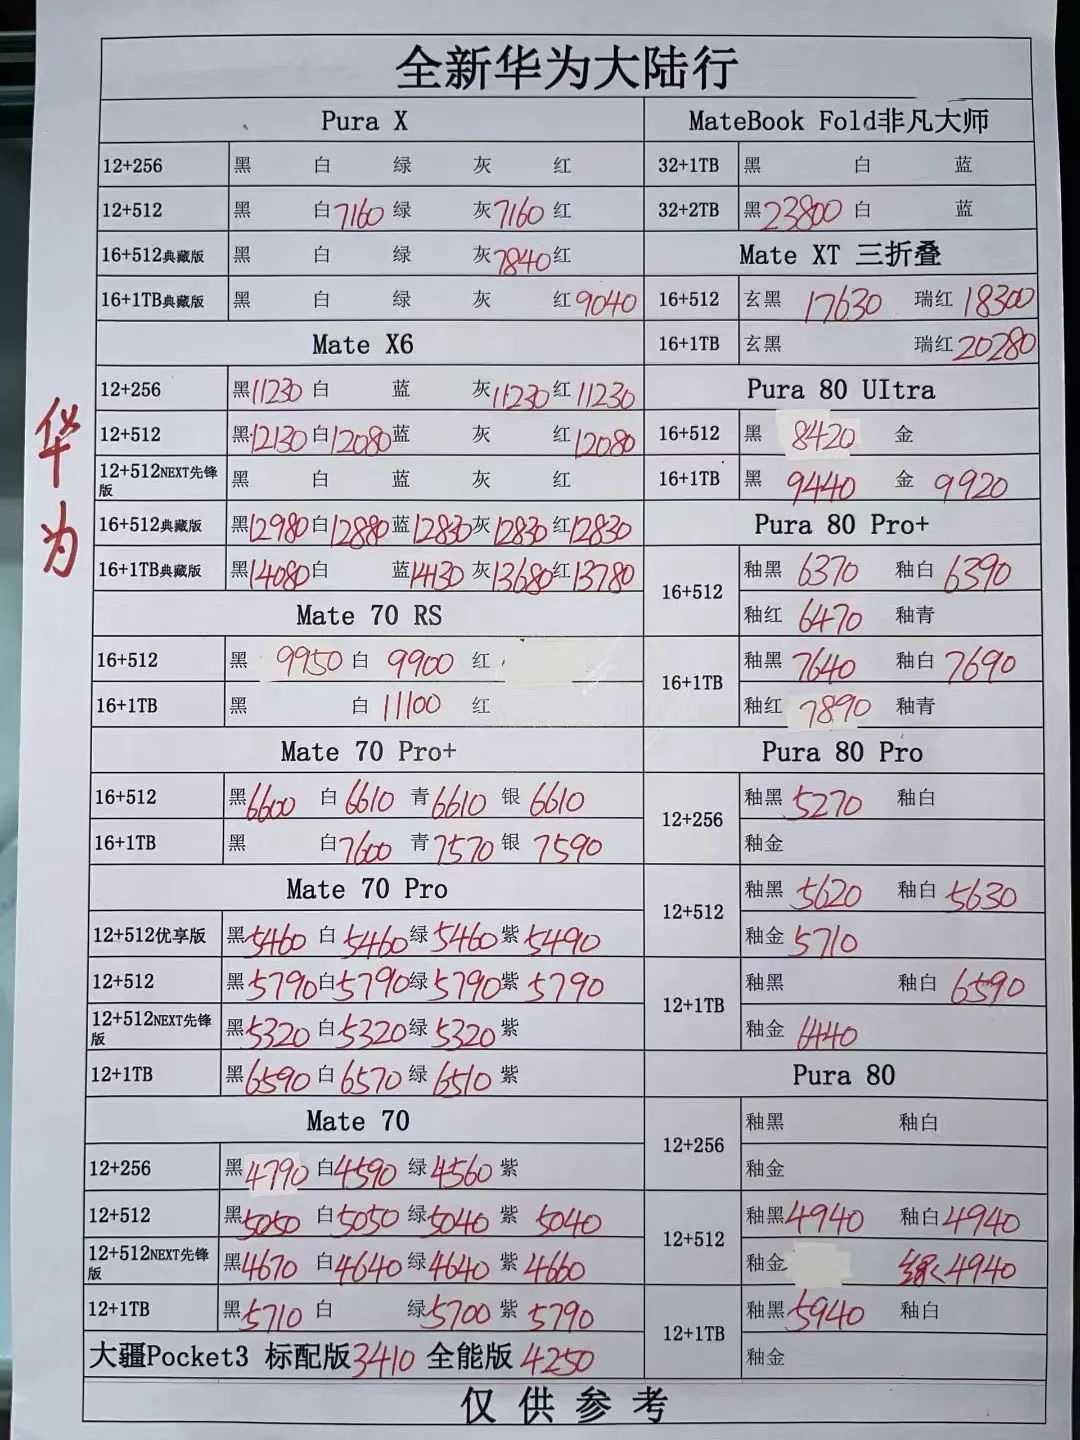 全新华为大陆行
华为
Pura X
12+256 黑 白 绿 灰 红
12+512 黑 白7160 绿 灰7160 红
16+512典藏版 黑 白 绿 灰7840 红
16+1TB典藏版 黑 白 绿 灰 红9040
Mate X6
12+256 黑11230 白 蓝 灰11230 红11230
12+512 黑12130 白12080 蓝 灰 红12080
12+512NEXT先锋版 黑 白 蓝 灰 红
16+512典藏版 黑12980 白12880 蓝12830 灰12830 红12830
16+1TB典藏版 黑14080 白 蓝14130 灰13680 红13780
Mate 70 RS
16+512 黑 9950 白 9900 红
16+1TB 黑 白 11100 红
Mate 70 Pro+
16+512 黑6600 白 6610 青6610 银 6610
16+1TB 黑 白7600 青7570 银 7590
Mate 70 Pro
12+512优享版 黑5460 白 5460 绿5460 紫5490
12+512 黑5790 白5790 绿5790 紫5790
12+512NEXT先锋版 黑5320 白5320 绿5320 紫
12+1TB 黑6590 白6570 绿6510 紫
Mate 70
12+256 黑4790 白4590 绿4560 紫
12+512 黑5050 白5050 绿5040 紫 5040
12+512NEXT先锋版 黑4670 白4640 绿4640 紫4660
12+1TB 黑5710 白 绿5700 紫5790
大疆Pocket3 标配版3410 全能版4250
MateBook Fold非凡大师
32+1TB 黑 白 蓝
32+2TB 黑23800 白 蓝
Mate XT 三折叠
16+512 玄黑 17630 瑞红18300
16+1TB 玄黑 瑞红20280
Pura 80 UItra
16+512 黑 8420 金
16+1TB 黑 9440 金 9920
Pura 80 Pro+
16+512 釉黑 6370 釉白6390
釉红 6470 釉青
16+1TB 釉黑 7640 釉白7690
釉红 7890 釉青
Pura 80 Pro
12+256 釉黑5270 釉白
釉金
12+512 釉黑5620 釉白5630
釉金5710
12+1TB 釉黑 釉白 6590
釉金 6440
Pura 80
12+256 釉黑 釉白
釉金
12+512 釉黑4940 釉白4940
釉金 绿4940
12+1TB 釉黑5940 釉白
釉金
仅供参考